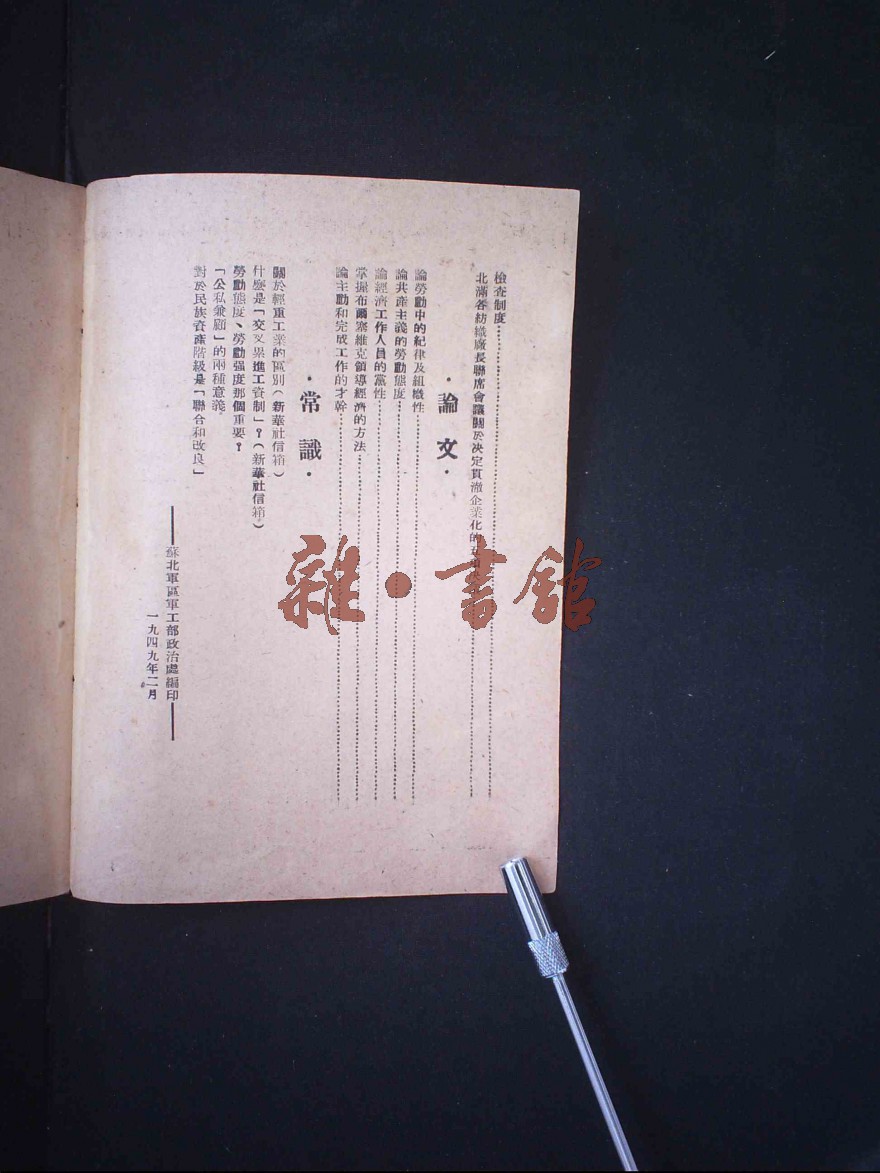 檢查制度
北滿各紡織廠長聯席會議關於決定貫澈企業化的五項
·論文·
論勞動中的紀律及組織性
論共產主義的勞動態度
論經濟工作人員的黨性
掌握布爾塞維克領導經濟的方法
論主動和完成工作的才幹
·常識·
關於輕重工業的區別(新華社信箱)
什麼是「交叉累進工資制」?(新華社信箱)
勞動態度、勞動强度那個重要?
「公私兼顧」的兩種意義
對於民族資產階級是「聯合和改良」
蘇北軍區軍工部政治處編印
一九四九年二月
雜·書館